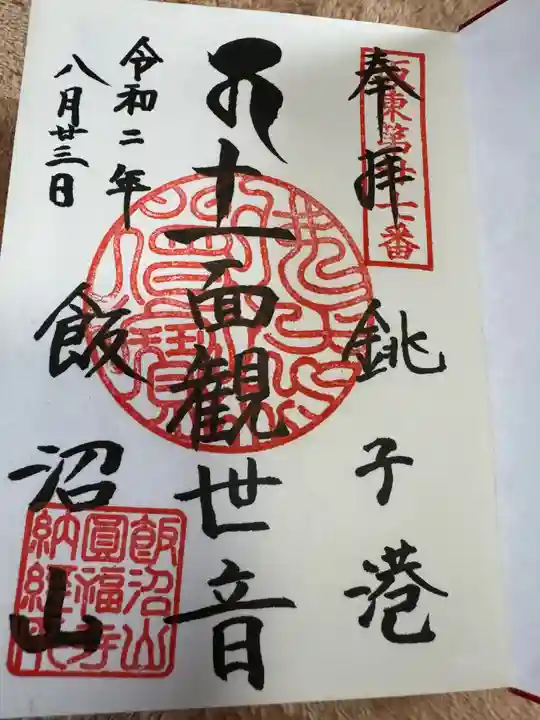 奉拝
坂東第廿七番
銚子港
十一面観世音
飯沼山
令和二年
八月廿三日
飯沼山
圓福寺
納経印